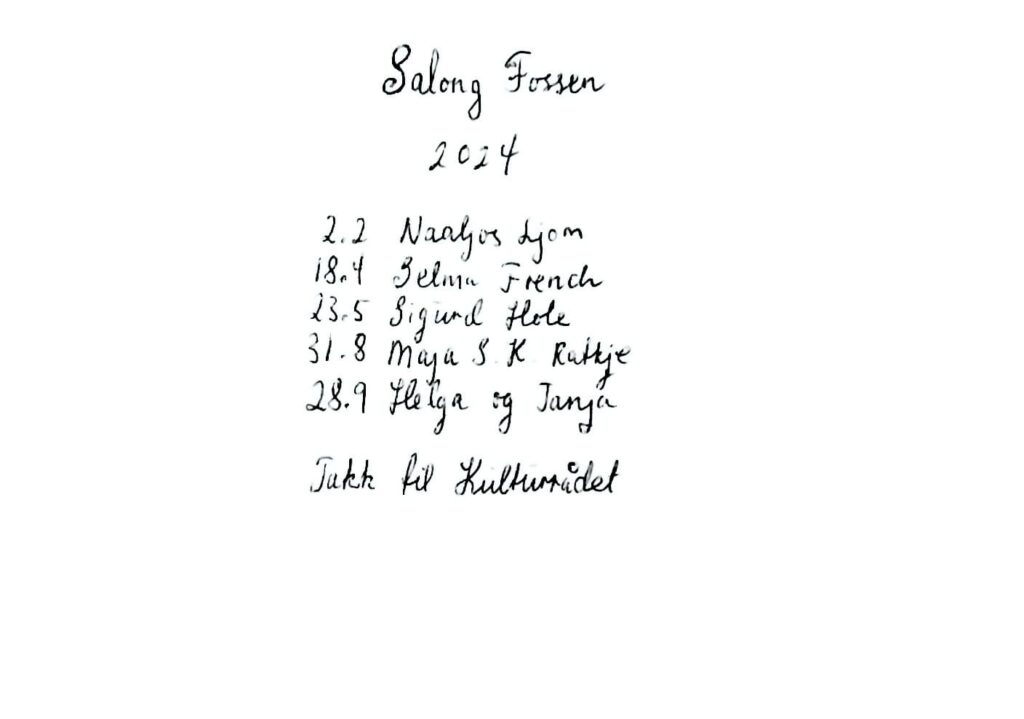 Salong Fossen
2024
2.2 Naaljos Ljom
18.4 Selma French
23.5 Sigurd Hole
31.8 Maja S K Ratkje
28.9 Helga og Tanja
Takk til Kulturrådet